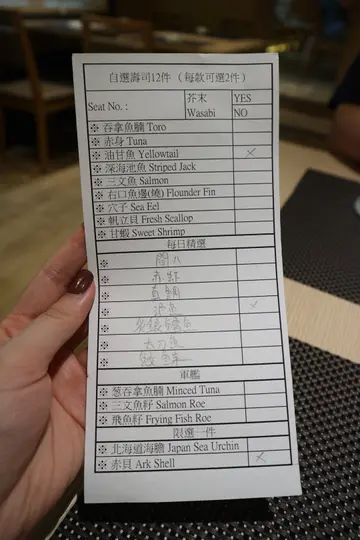 自選壽司12件 （每款可選2件）
Seat No.: 芥末 Wasabi YES NO
※ 吞拿魚腩 Toro
※ 赤身 Tuna
※ 油甘魚 Yellowtail ×
※ 深海池魚 Striped Jack
※ 三文魚 Salmon
※ 右口魚邊(燒) Flounder Fin
※ 穴子 Sea Eel
※ 帆立貝 Fresh Scallop
※ 甘蝦 Sweet Shrimp
每日精選
※ 間八
※ 赤蝦
※ 真鯛
※
※
※ 太刀魚
※
軍艦
※ 葱吞拿魚腩 Minced Tuna
※ 三文魚籽 Salmon Roe
※ 飛魚籽 Frying Fish Roe
限選一件
※ 北海道海膽 Japan Sea Urchin
※ 赤貝 Ark Shell ×